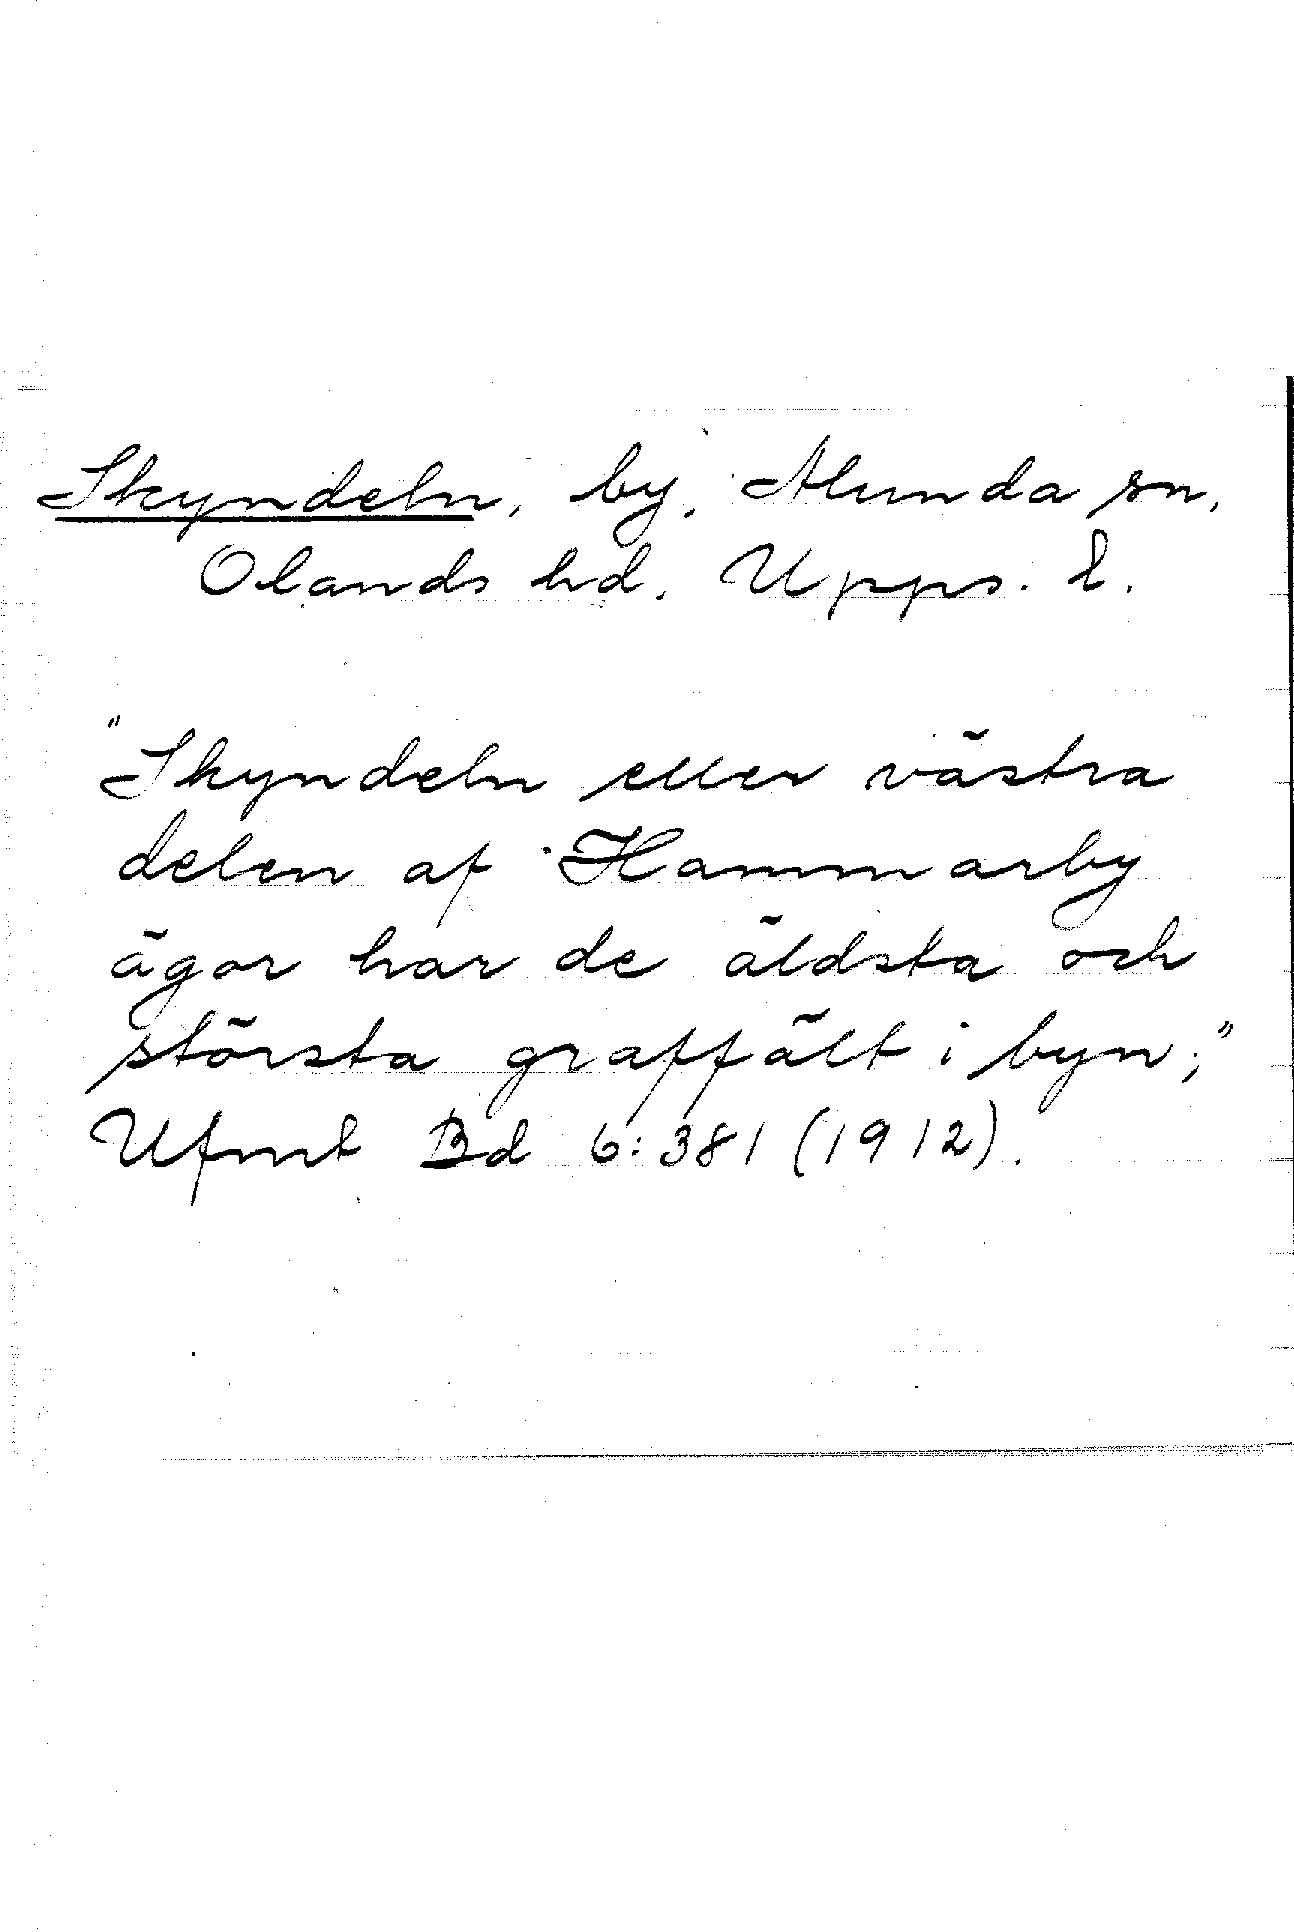 Skyndeln, by, Alunda sn,
Olands hd. Upps. l.
"Skyndeln eller västra
delen af Hammarby
ägor har de äldsta och
största graffält i byn;"
Ufmt Bd 6:381 (1912).